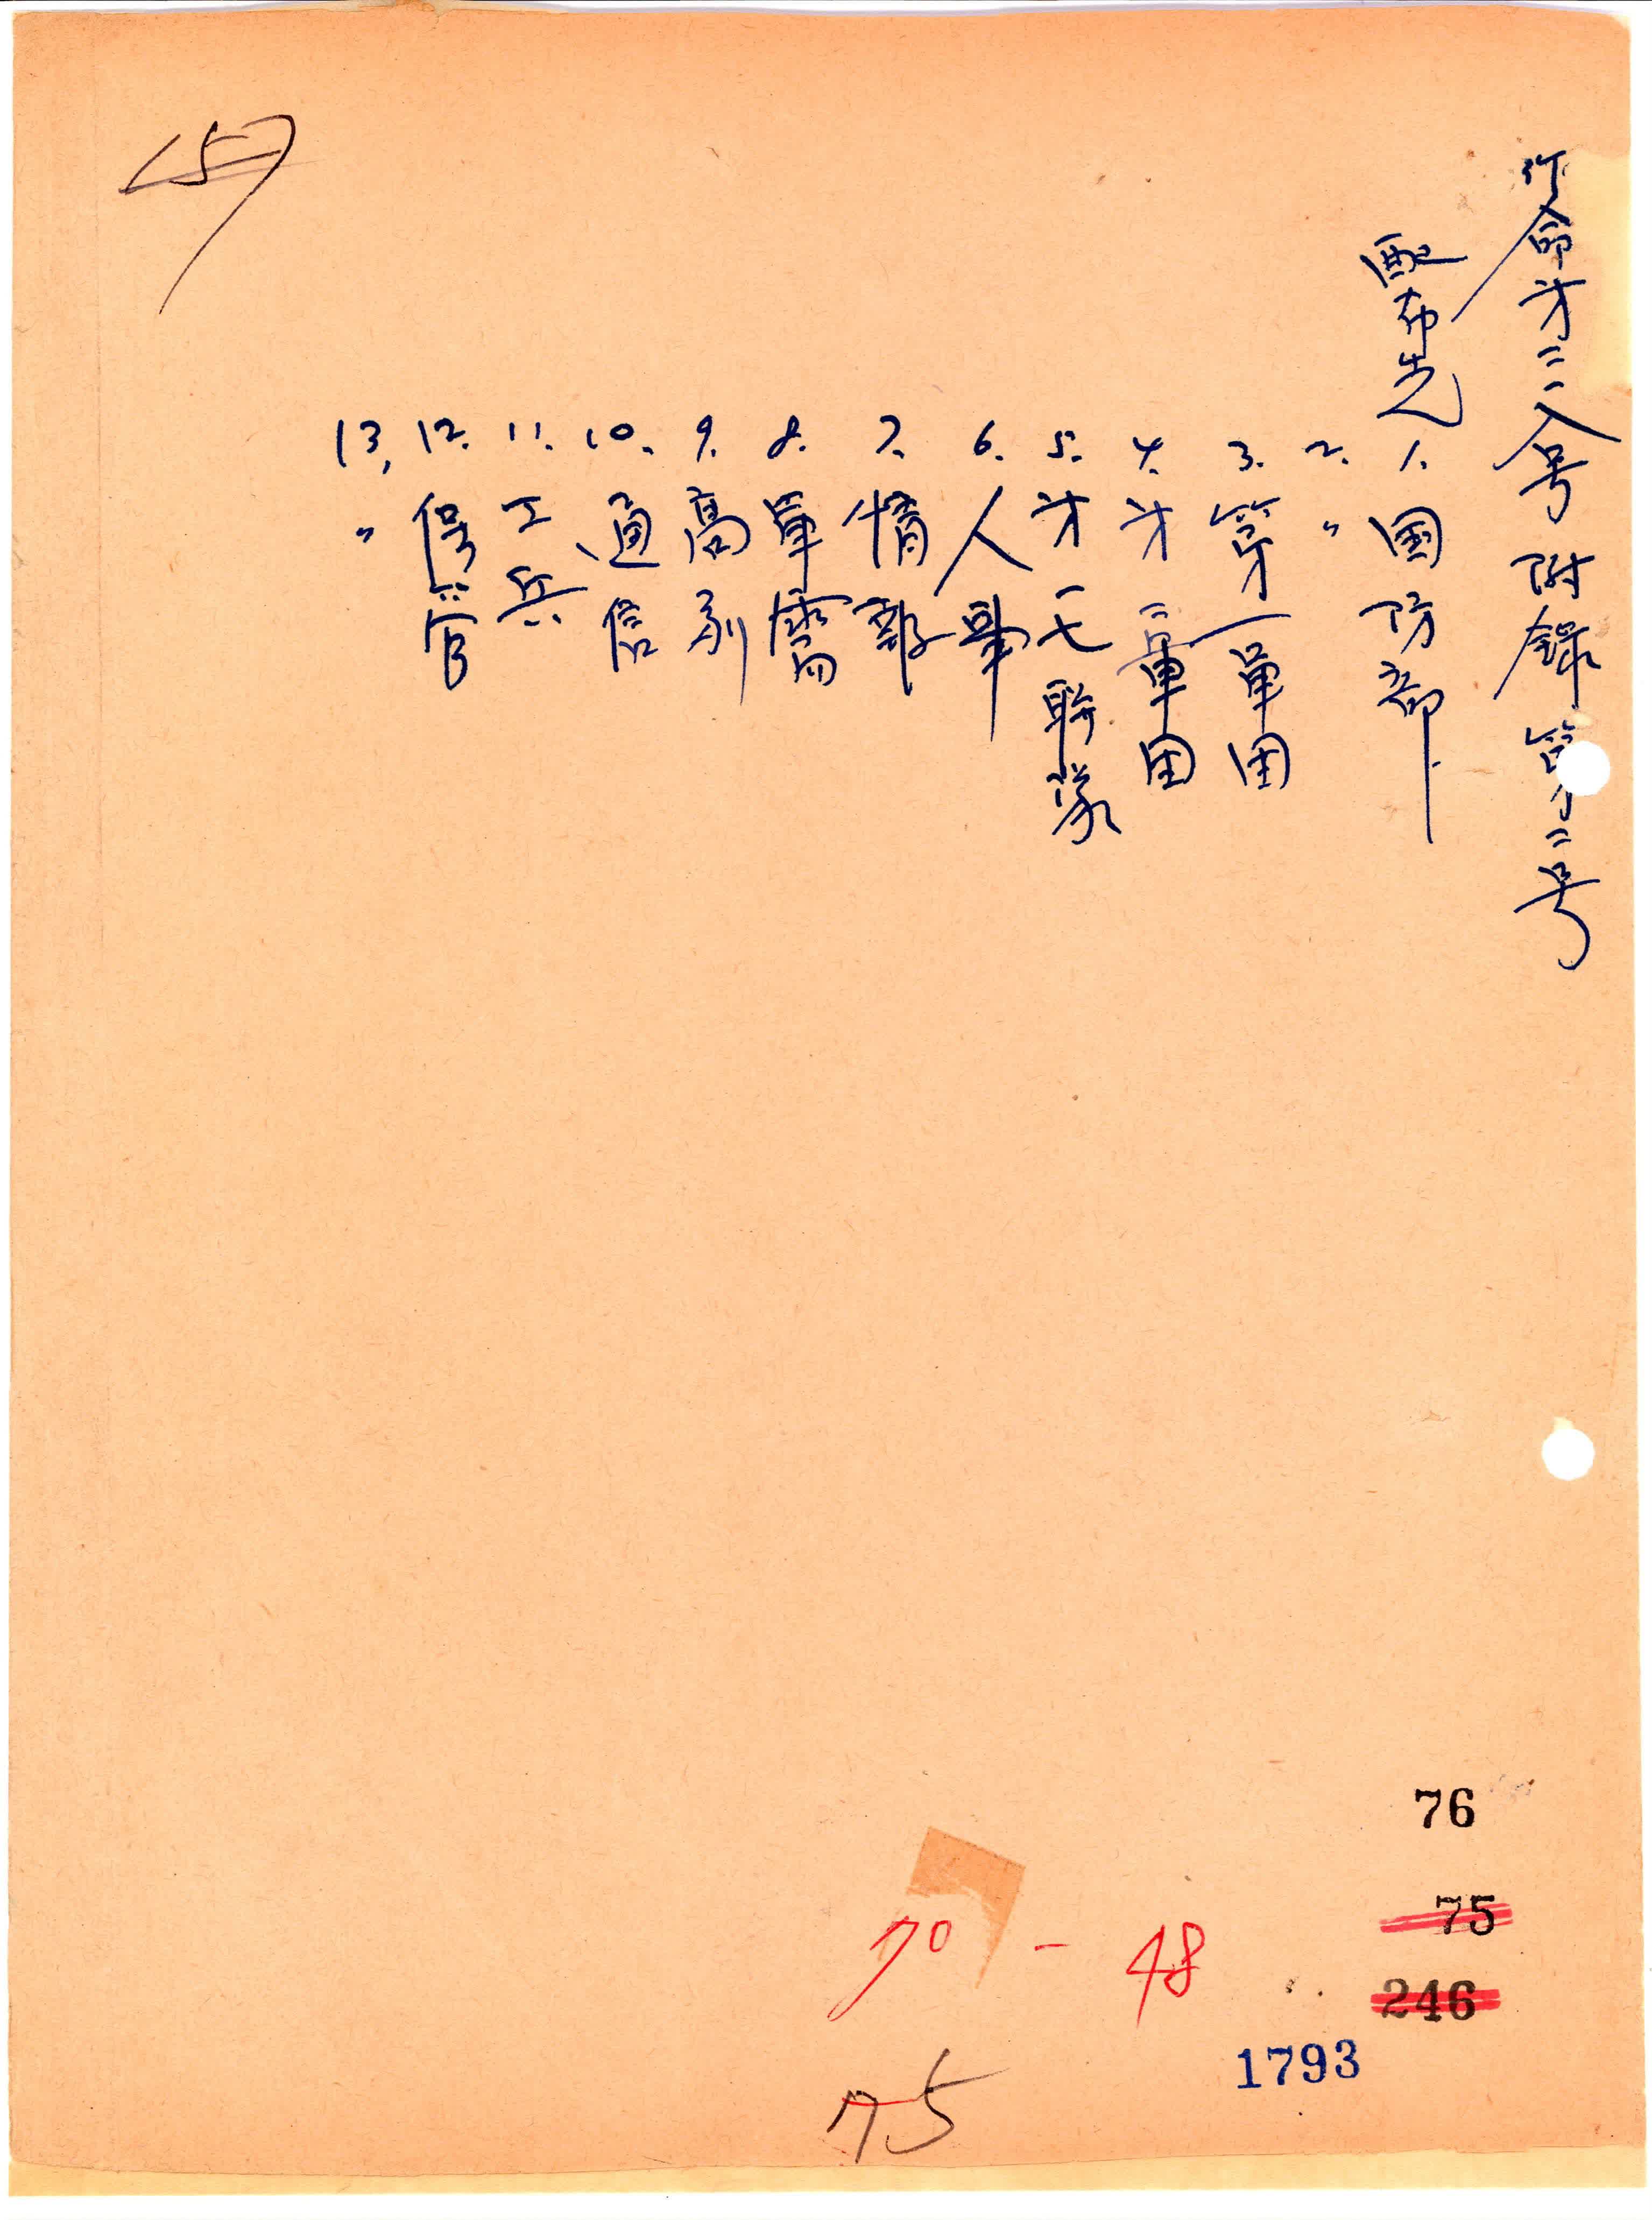 作命才三二八号 附録 第二号
配布先
1. 国防部
2. 〃
3. 第一軍団
4. 才二軍団
5. 才一七聯隊
6. 人事
7. 情報
8. 軍需
9. 高射
10. 通信
11. 工兵
12. 保管
13. 〃
157
76
75
246
70 - 48
1793
75